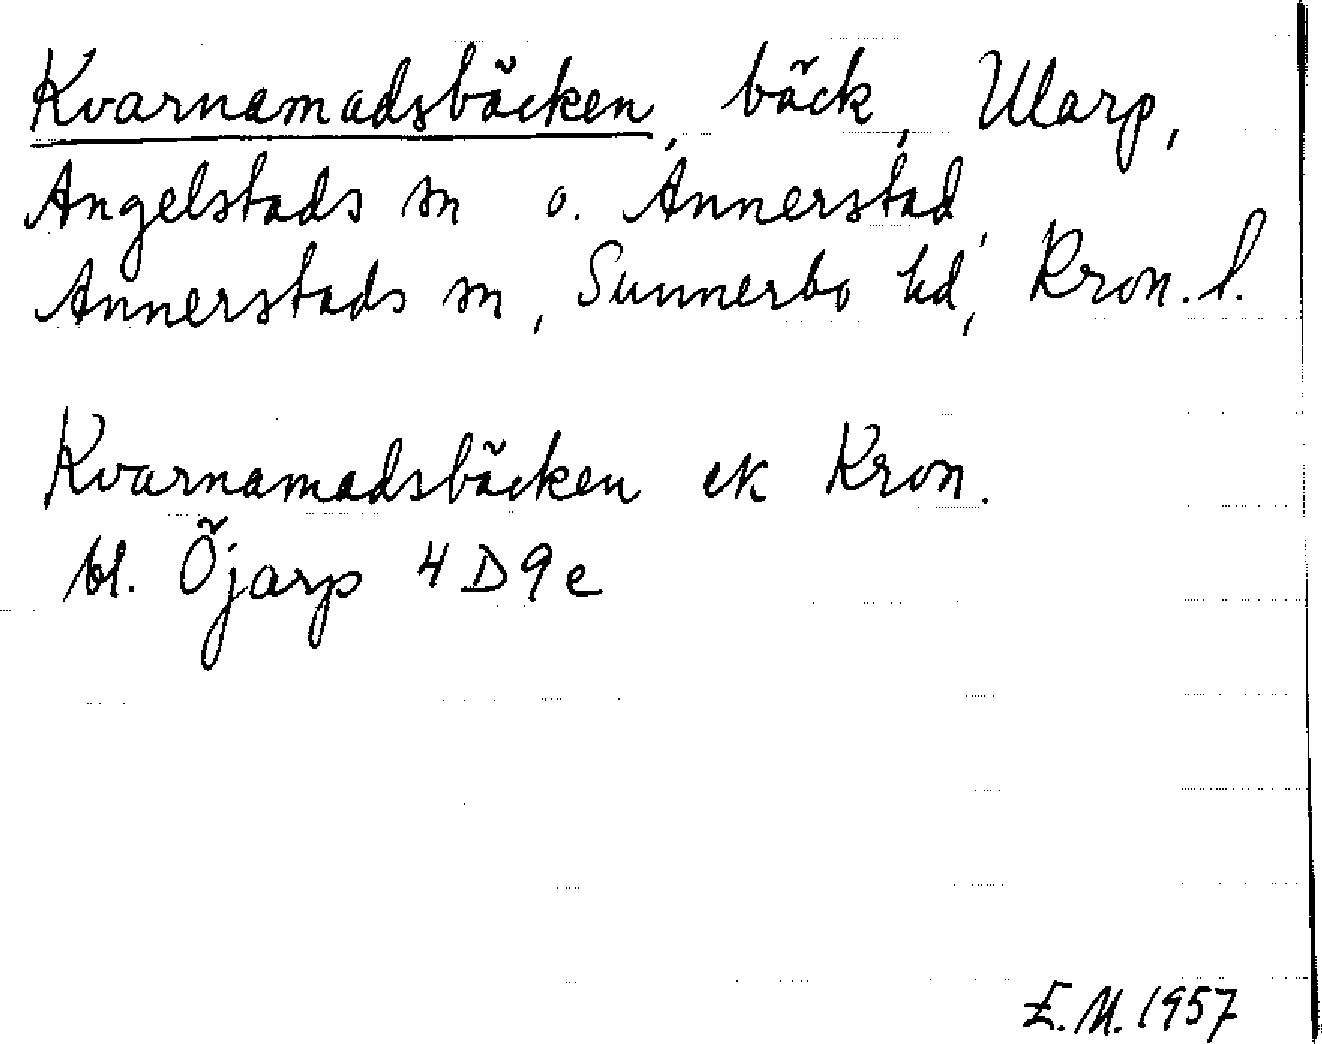 Kvarnamadsbäcken, bäck, Ularp,
Angelstads sn o. Annerstad,
Annerstads sn, Sunnerbo hd, Kron. l.
Kvarnamadsbäcken ek Kron.
bl. Öjarp 4 D 9 e
E.M. 1957